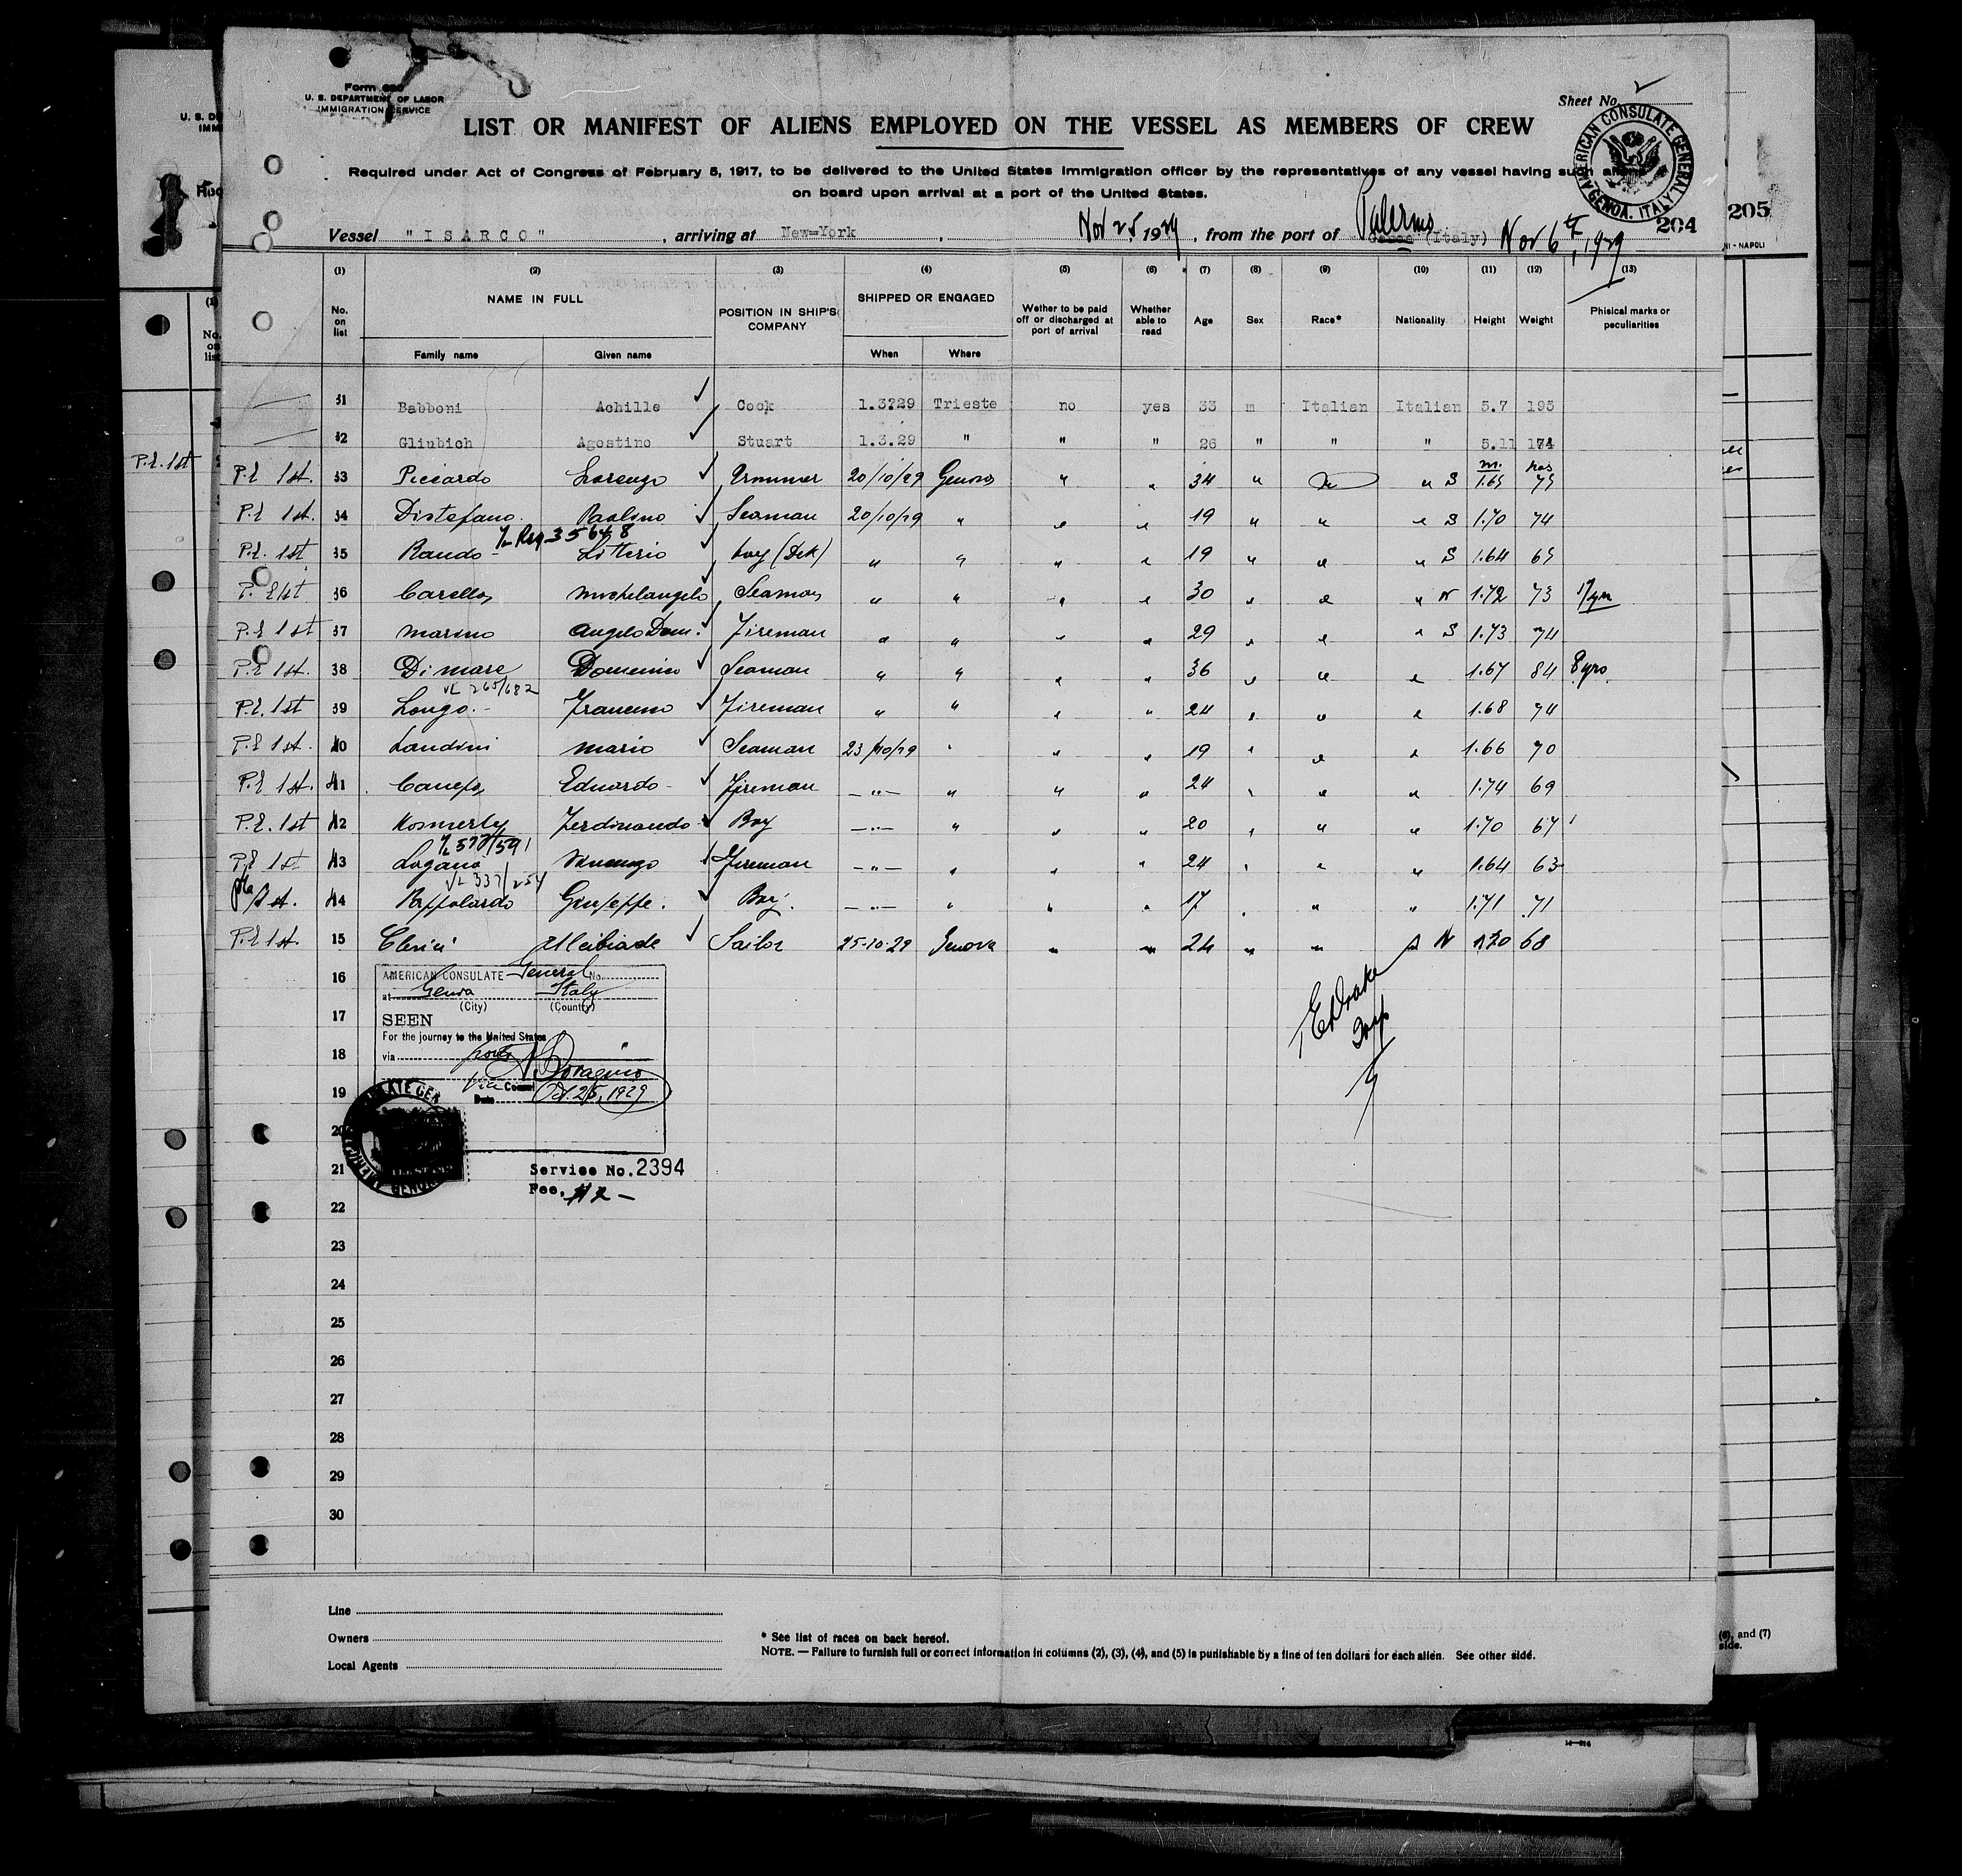 Form 680
U. S. DEPARTMENT OF LABOR
IMMIGRATION SERVICE
Sheet No.
LIST OR MANIFEST OF ALIENS EMPLOYED ON THE VESSEL AS MEMBERS OF CREW
AMERICAN CONSULATE GENERAL GENOA, ITALY
Required under Act of Congress of February 5, 1917, to be delivered to the United States Immigration officer by the representatives of any vessel having such aliens
on board upon arrival at a port of the United States.
204
205
Vessel "ISARCO", arriving at New-York, Nov 25 1929, from the port of Palermo (Italy) Nov 6th, 1929
(1) (2) (3) (4) (5) (6) (7) (8) (9) (10) (11) (12) (13)
No. on list NAME IN FULL POSITION IN SHIP'S COMPANY SHIPPED OR ENGAGED Wether to be paid off or discharged at port of arrival Whether able to read Age Sex Race* Nationality Height Weight Phisical marks or peculiarities
Family name Given name When Where
31 Babboni Achille Cook 1.3.29 Trieste no yes 33 m Italian Italian 5.7 195
32 Gliubich Agostino Stuart 1.3.29 " " " 26 " " " 5.11 174
P.E. 1st
P.E 1st. 33 Piccardo Lorenzo 20/10/29 Genova " " 34 " " S 1.65 75
P.E 1st. 34 Distefano Paolino Seaman 20/10/29 " " " 19 " " " S 1.70 74
P.E. 1st 35 Rando Litterio boy (Dek) " " " " 19 " " " S 1.64 65
36 Carella Michelangelo Seaman " " " " 30 " " " N 1.72 73
P.E 1st 37 Marino Angelo Dom. Fireman " " " " 29 " " " S 1.73 74
P.E 1st. 38 Dimare Domenico Seaman " " " " 36 " " " 1.67 84 8 yrs.
VL 265/682
P.E. 1st 39 Longo Francesco Fireman " " " " 24 " " " 1.68 74
P.E 1st. 40 Landini Mario Seaman 23/10/29 " " " 19 " " " 1.66 70
P.E 1st. 41 Canepa Eduardo Fireman -"- " " " 24 " " " 1.74 69
P.E. 1st 42 Ferdinando Boy -"- " " " 20 " " " 1.70 67
P.E 1st 43 Logano Vincenzo Fireman -"- " " " 24 " " " 1.64 63
VL 337/254
1st. 44 Giuseppe. Boy. -"- " " " 17 " " " 1.71 71
P.E 1st. 15 Clerici Alcibiade Sailor 25-10-29 Genova " " 24 " " " N 1.70 68
16
AMERICAN CONSULATE General No.
at Genoa Italy
(City) (Country)
17
SEEN
For the journey to the United States
18
via
Vice Consul
19
Date Oct. 25, 1929
20
21
Service No. 2394
Fee,
22
23
24
25
26
27
28
29
30
Line
Owners
Local Agents
* See list of races on back hereof.
NOTE. — Failure to furnish full or correct information in columns (2), (3), (4), and (5) is punishable by a fine of ten dollars for each alien. See other side.
(6), and (7)
side.